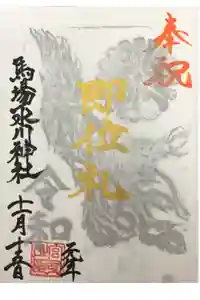 奉祝
即位礼
令和
元年
十一月十三日
馬場氷川神社